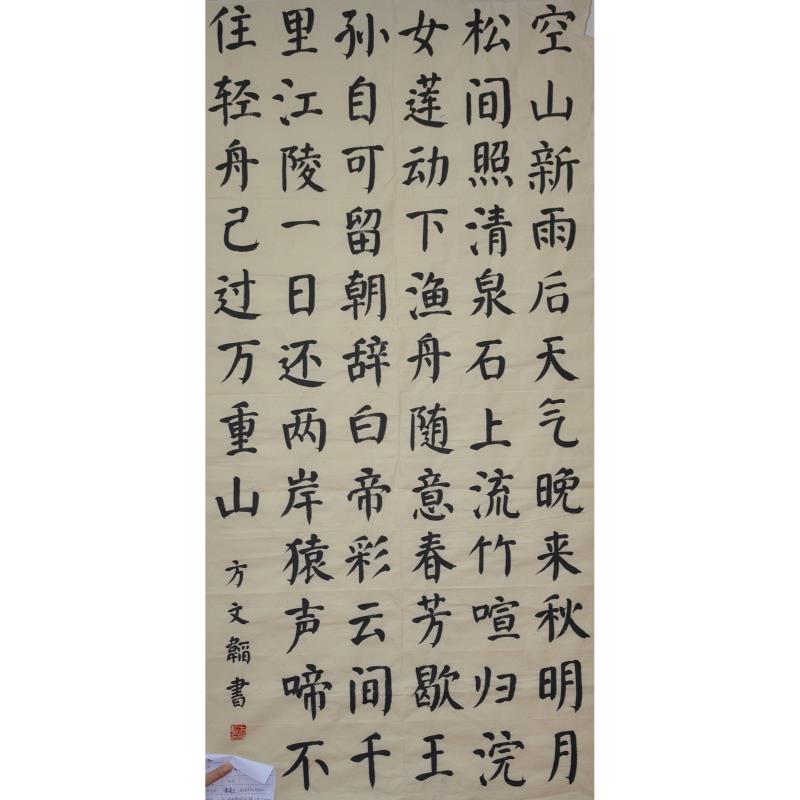 空山新雨后天气晚来秋明月
松间照清泉石上流竹喧归浣
女莲动下渔舟随意春芳歇王
孙自可留朝辞白帝彩云间千
里江陵一日还两岸猿声啼不
住轻舟己过万重山
方文韜書